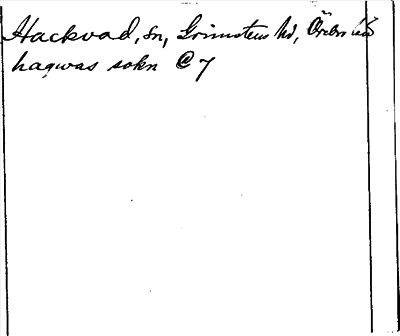 Hackvad, sn, Grimstens hd, Örebro län
haquas sokn C 7